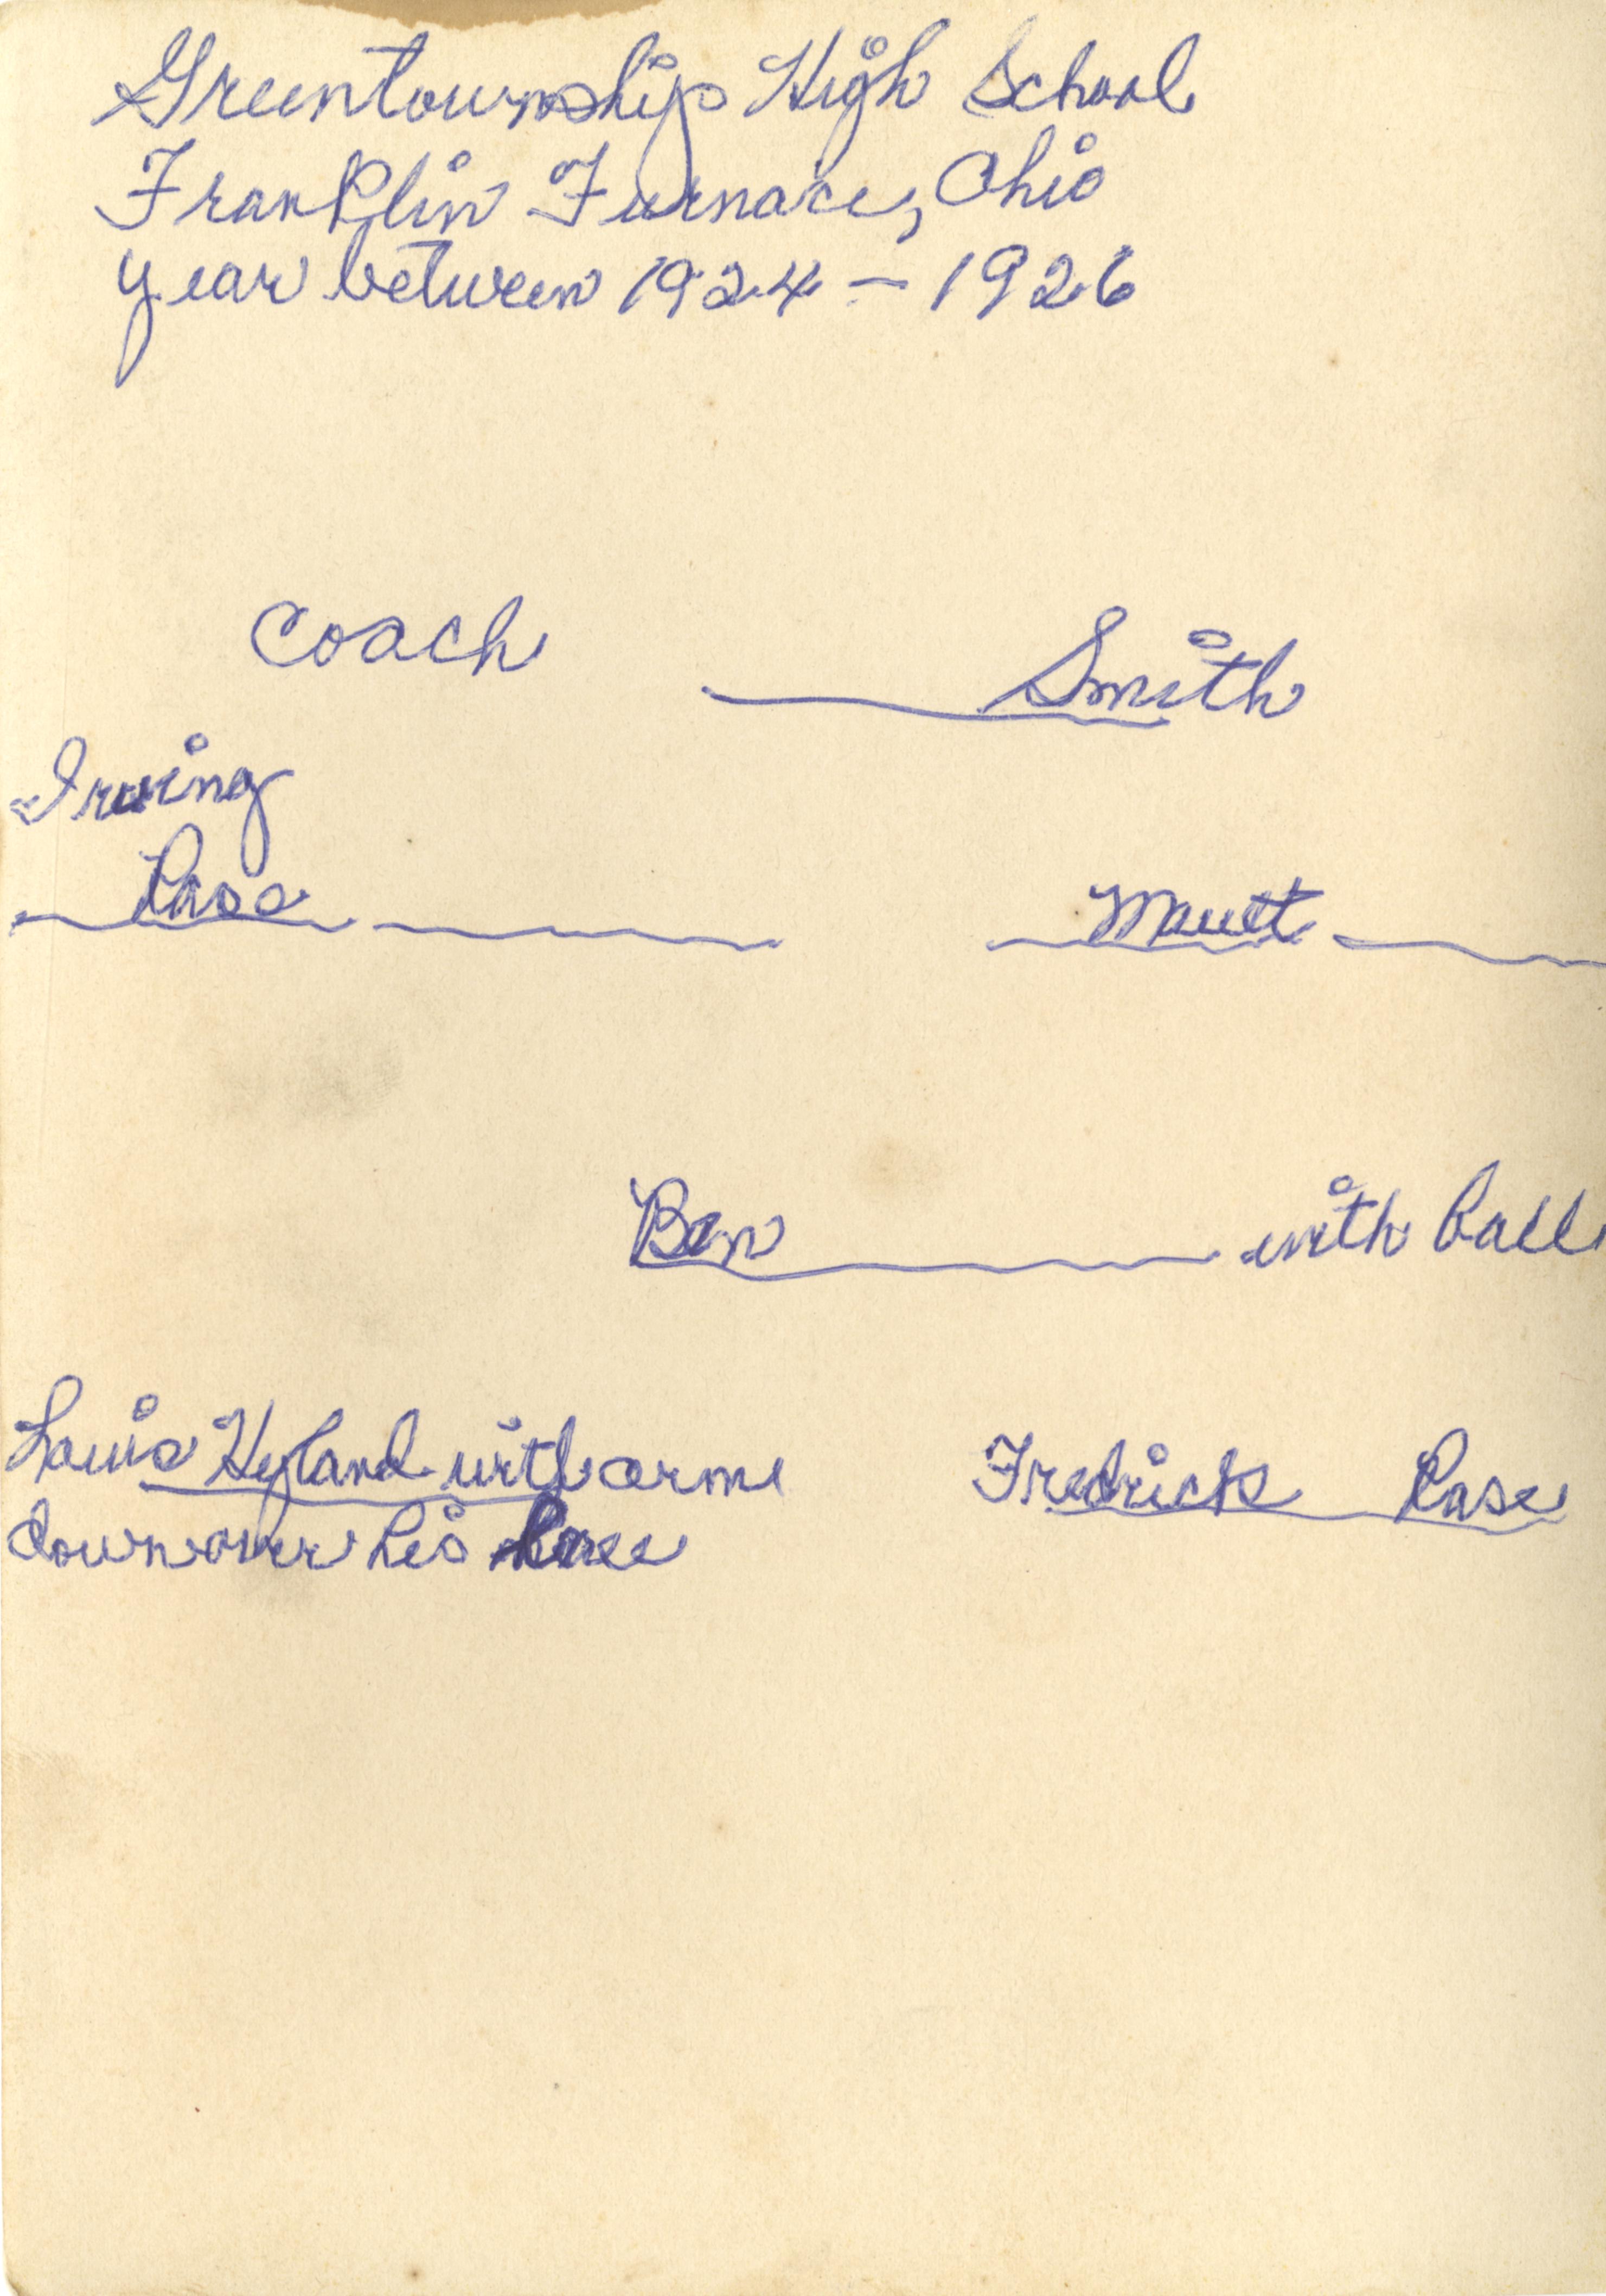 Greentownship High School
Franklin Furnace, Ohio
year between 1924 - 1926
Coach Smith
Irving
Rase
Ben with ball
Louis Hyland with arms
down over his knee
Fredrick Rase